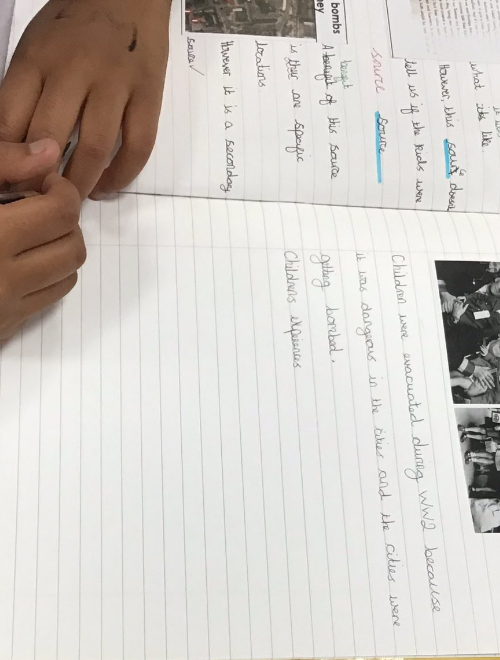 what its like.
However, this source doesnt
tell us if the kids were
source source
bombs
benefit
A benefit of this source
is they are specific
locations
However it is a secondary
source
Children were evacuated during WW2 because
it was dangrous in the cities and the cities were
getting bombed.
Childrens expeences